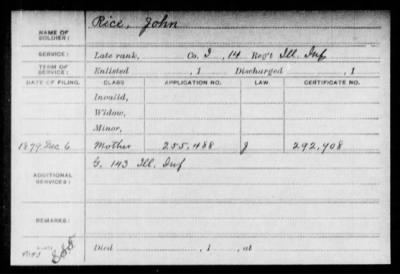 NAME OF SOLDIER: Rice, John
SERVICE: Late rank, Co. I, 14 Reg't Ill. Inf
TERM OF SERVICE: Enlisted , 1 Discharged , 1
DATE OF FILING. CLASS APPLICATION NO. LAW. CERTIFICATE NO.
Invalid,
Widow,
Minor,
1879 Dec 6 Mother 255,488 J 292,908
ADDITIONAL SERVICES: G. 143 Ill. Inf
REMARKS:
Died , 1 , at